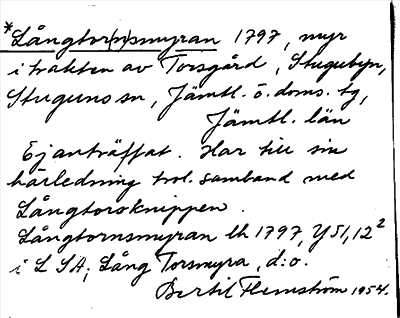 *Långtor(n)smyran 1797, myr
i trakten av Torsgård, Stugubyn,
Stuguns sn, Jämtl. ö. doms. tg,
Jämtl. län
Ej anträffat. Har till sin
härledning trol. samband med
Långtoroknippen.
Långtornsmyran lh 1797, Y51, 12²
i LSA; Lång Torsmyra, d:o.
Bertil Flemström 1954.